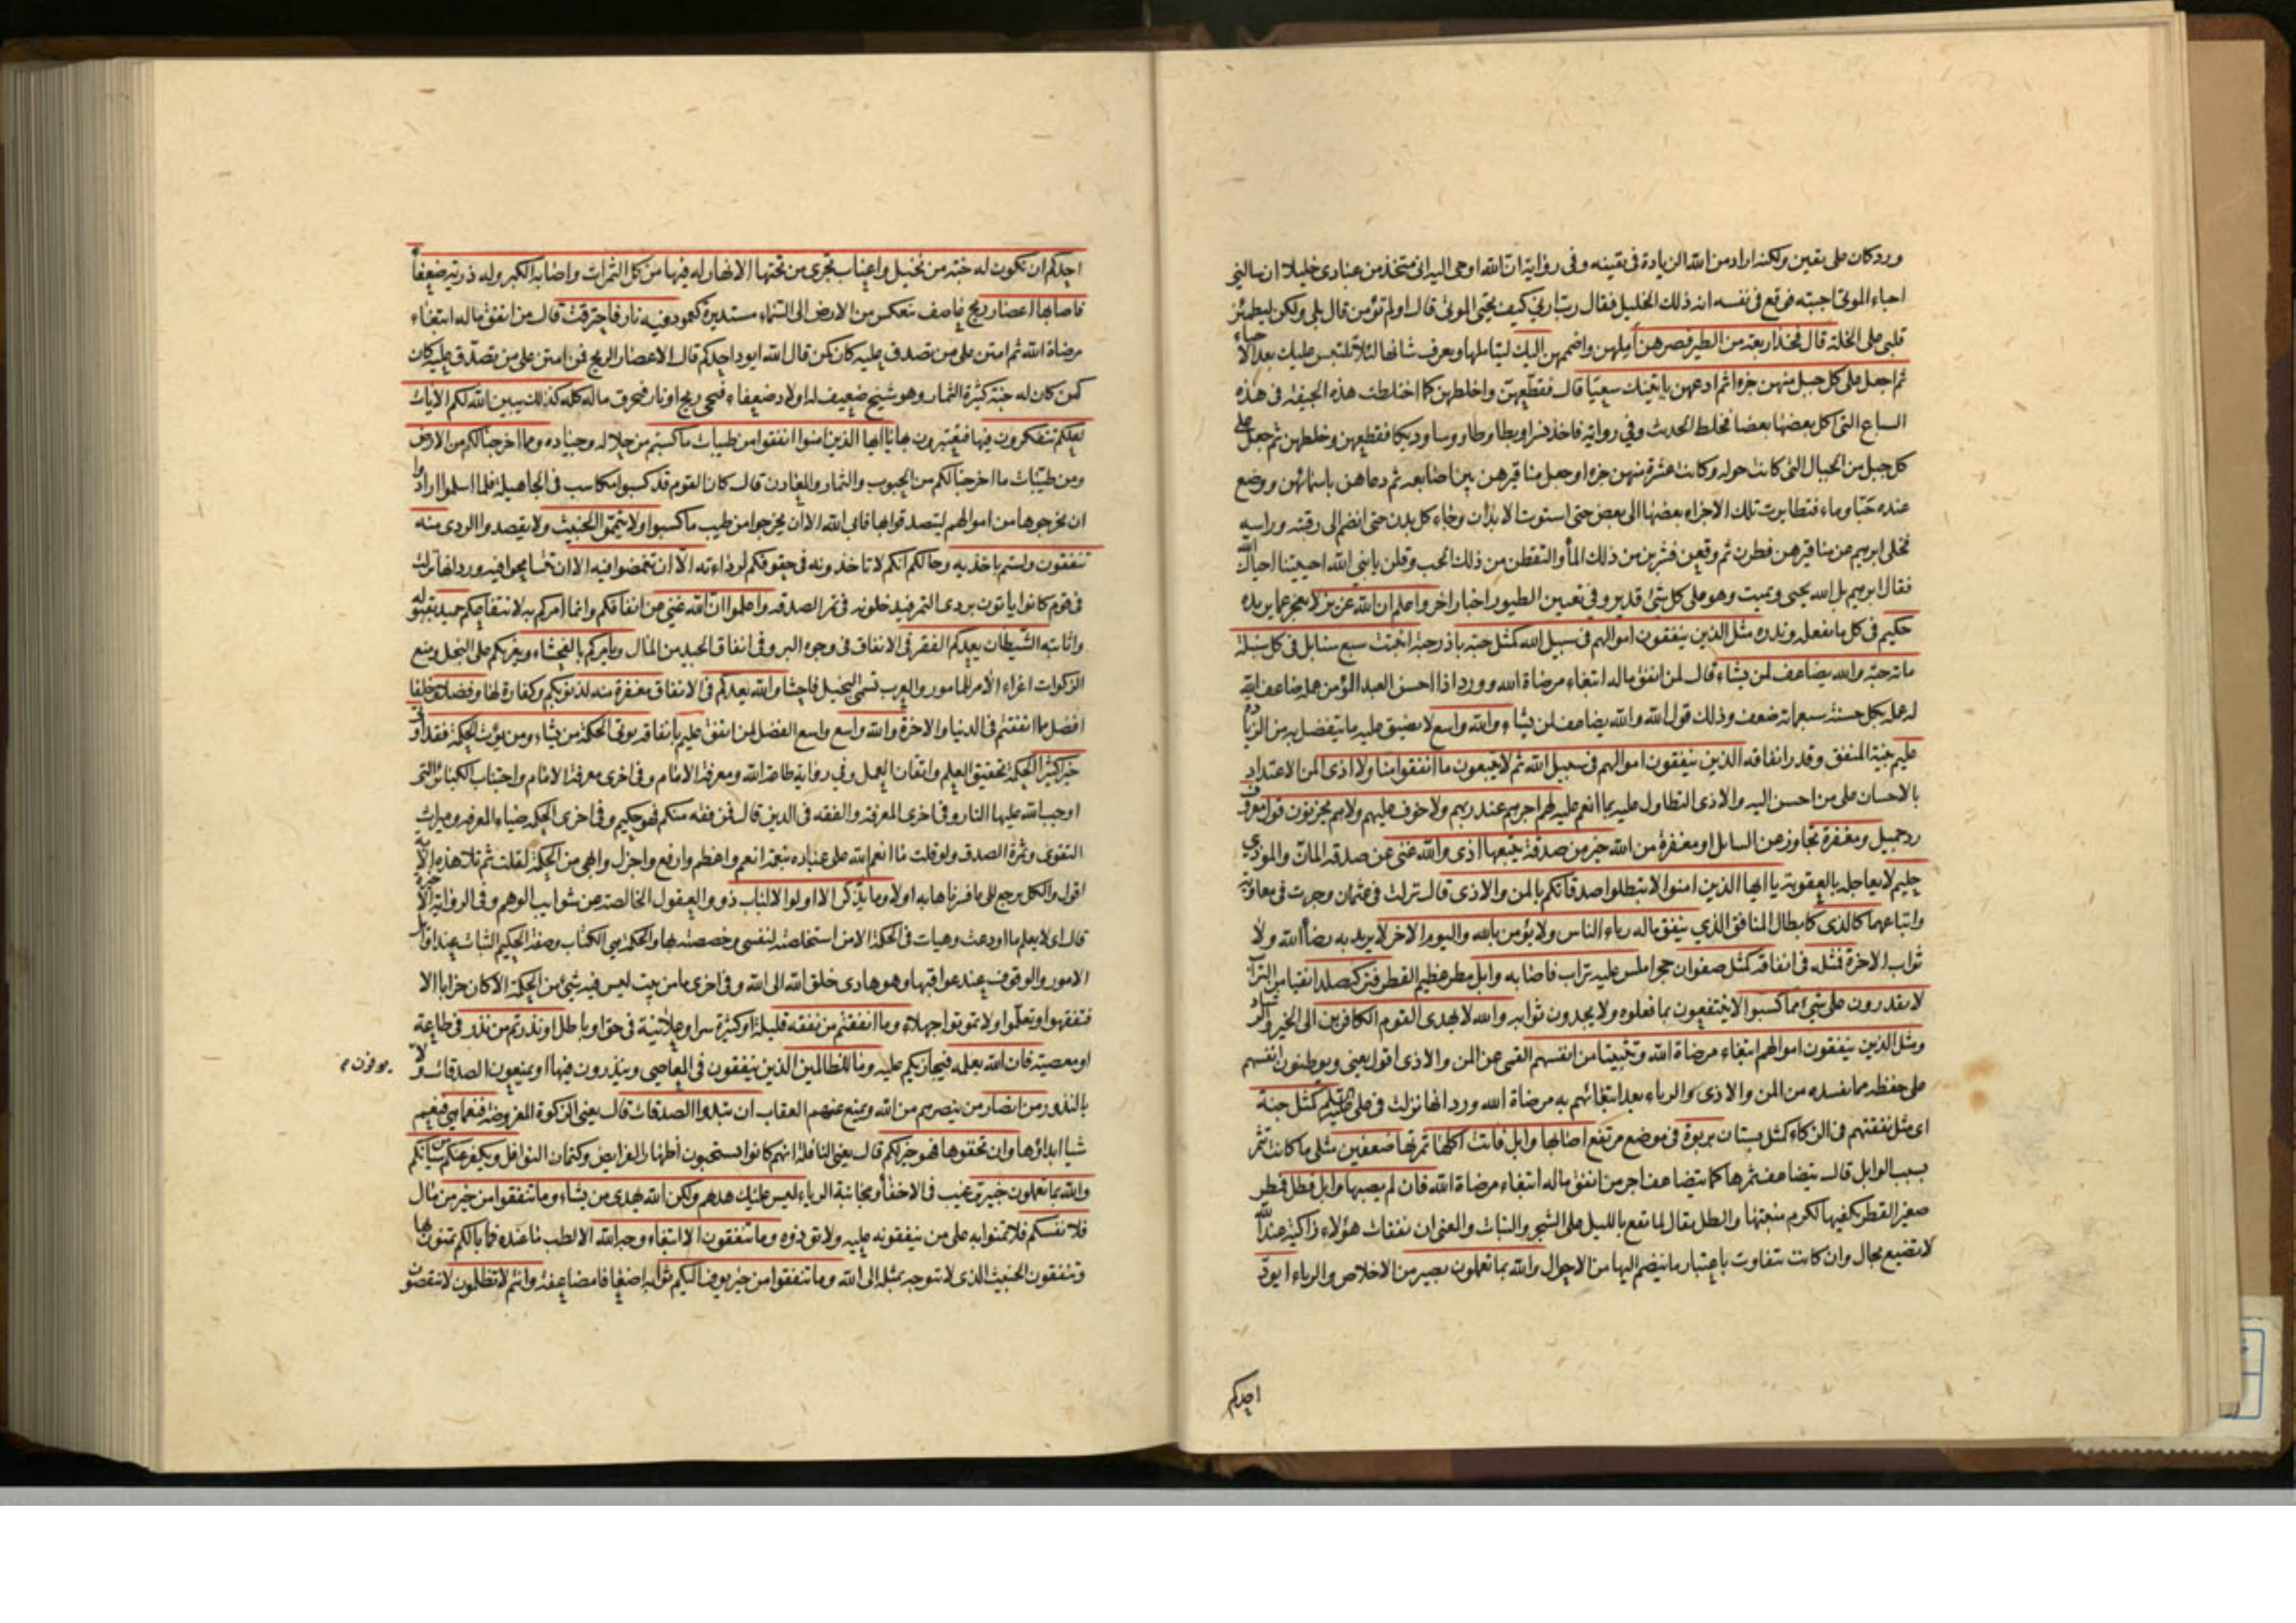 ورد كان على يقين ولكنه اراد من الله الزيادة فى يقينه وفى رواية ان الله اوحى اليه انى متخذ من عبادى خليلا ان سالنى
احياء الموتى اجبته فوقع فى نفسه انه ذلك الخليل فقال رب ارنى كيف تحيى الموتى قال اولم تؤمن قال بلى ولكن ليطمئن
قلبى على الخلة قال فخذ اربعة من الطير فصرهن املهن واضممهن اليك لتتاملها وتعرف شانها لئلا تلتبس عليك بعد الاحياء
ثم اجعل على كل جبل منهن جزءا ثم ادعهن ياتينك سعيا قال فقطعهن واخلطهن كما اختلطت هذه الجيفة فى هذه
السباع التى اكل بعضها بعضا فخلط الحديث وفى رواية فاخذ نسرا وبطا وطاوسا وديكا فقطعهن وخلطهن ثم جعل على
كل جبل من الجبال التى كانت حوله وكانت عشرة منهن جزءا وجعل مناقيرهن بين اصابعه ثم دعاهن باسمائهن ووضع
عنده حبا وماء فتطايرت تلك الاجزاء بعضها الى بعض حتى استوت الابدان وجاء كل بدن حتى انضم الى رقبته وراسه
فخلى ابرهيم عن مناقيرهن فطرن ثم وقعن فشربن من ذلك الماء والتقطن من ذلك الحب وقلن يا نبى الله احييتنا احياك الله
فقال ابرهيم بل الله يحيى ويميت وهو على كل شئ قدير وفى تعيين الطيور اخبار اخر واعلم ان الله عزيز لا يعجز عما يريده
حكيم فى كل ما يفعله ويذره مثل الذين ينفقون اموالهم فى سبيل الله كمثل حبة باذر حبة انبتت سبع سنابل فى كل سنبلة
ماتة حبة والله يضاعف لمن يشاء قال لمن انفق ماله ابتغاء مرضاة الله وورد اذا احسن العبد المؤمن عمله ضاعف الله
له عمله بكل حسنة سبعمائة ضعف وذلك قول الله والله يضاعف لمن يشاء والله واسع لا يضيق عليه ما يتفضل به من الزيادة
عليم بنية المنفق وقدر انفاقه الذين ينفقون اموالهم فى سبيل الله ثم لا يتبعون ما انفقوا منا ولا اذى المن الاعتداد
بالاحسان على من احسن اليه والاذى التطاول عليه بما انعم عليه لهم اجرهم عند ربهم ولا خوف عليهم ولا هم يحزنون قول معروف
رد جميل ومغفرة تجاوز عن السايل او مغفرة من الله خير من صدقة يتبعها اذى والله غنى عن صدقة المان والموذي
حليم لا يعاجله بالعقوبة يا ايها الذين امنوا لا تبطلوا صدقاتكم بالمن والاذى قال نزلت فى عثمان وجرت فى معاوية
واتباعهما كالذى كابطال المنافق الذي ينفق ماله رياء الناس ولا يؤمن بالله واليوم الاخر لا يريد به رضا الله ولا
ثواب الاخرة فمثله فى انفاقه كمثل صفوان حجر املس عليه تراب فاصابه وابل مطر عظيم القطر فتركه صلدا نقيا من التراب
لا يقدرون على شئ مما كسبوا لا ينتفعون بما فعلوه ولا يجدون ثوابه والله لا يهدى القوم الكافرين الى الخير والرشاد
ومثل الذين ينفقون اموالهم ابتغاء مرضاة الله وتثبيتا من انفسهم القمى عن المن والاذى اقول يعنى ويوطنون انفسهم
على حفظه مما يفسده من المن والاذى والرياء بعد ابتغائهم به مرضاة الله ورد انها نزلت فى على كمثل جنة
اى مثل نفقتهم فى الزكاء كمثل بستان بربوة فى موضع مرتفع اصابها وابل فاتت اكلها ثمرتها ضعفين مثلى ما كانت تثمر
بسبب الوابل قال يتضاعف ثمرها كما يتضاعف اجر من انفق ماله ابتغاء مرضاة الله فان لم يصبها وابل فطل فطر
صغير القطر يكفيها لكرم منبتها والطل يقال لما يقع بالليل على الشجر والنبات والمعنى ان نفقات هؤلاء زاكية عند الله
لا تضيع بحال وان كانت تتفاوت باعتبار ما ينضم اليها من الاحوال والله بما تعملون بصير من الاخلاص والرياء ايود
احدكم
احدكم ان تكون له جنة من نخيل واعناب تجرى من تحتها الانهار له فيها من كل الثمرات واصابه الكبر وله ذرية ضعفاء
فاصابها اعصار ريح عاصف تنعكس من الارض الى السماء مستديرة كعمود فيه نار فاحترقت قال من انفق ماله ابتغاء
مرضاة الله ثم امتن على من تصدق عليه كان كمن قال الله ايود احدكم قال الاعصار الريح فمن امتن على من تصدق عليه كان
كمن كان له جنة كثيرة الثمار وهو شيخ ضعيف له اولاد ضعفاء فتجى ريح او نار فتحرق ماله كله كذلك يبين الله لكم الايات
لعلكم تتفكرون فيها فتعتبرون بها يا ايها الذين امنوا انفقوا من طيبات ما كسبتم من حلاله وجياده ومما اخرجنا لكم من الارض
ومن طيبات ما اخرجنا لكم من الحبوب والثمار والمعادن قال كان القوم قد كسبوا مكاسب فى الجاهلية فلما اسلموا ارادوا
ان يخرجوها من اموالهم ليتصدقوا بها فابى الله الا ان يخرجوا من طيب ما كسبوا ولا تيمموا الخبيث ولا يقصدوا الردى منه
تنفقون ولستم باخذيه وحالكم انكم لا تاخذونه فى حقوقكم لرداءته الا ان تغمضوا فيه الا ان تتسامحوا فيه ورد انها نزلت
فى قوم كانوا ياتون بردى التمر فيدخلونه فى تمر الصدقة واعلموا ان الله غنى عن انفاقكم وانما امركم به لانتفاعكم حميد بقبوله
واثابته الشيطان يعدكم الفقر فى الانفاق فى وجوه البر وفى انفاق الجيد من المال ويامركم بالفحشاء ويغريكم على البخل ومنع
الزكوات اغراء الامر المامور والعرب تسمى البخيل فاحشا والله يعدكم فى الانفاق مغفرة منه لذنوبكم وكفارة لها وفضلا وخلفا
افضل مما انفقتم فى الدنيا والاخرة والله واسع واسع الفضل لمن انفق عليم بانفاقه يوتى الحكمة من يشاء ومن يؤت الحكمة فقد اوتى
خيرا كثيرا الحكمة تحقيق العلم واتقان العمل وفى رواية طاعة الله ومعرفة الامام وفى اخرى معرفة الامام واجتناب الكبائر التى
اوجب الله عليها النار وفى اخرى المعرفة والفقه فى الدين قال فمن فقه منكم فهو حكيم وفى اخرى الحكمة ضياء المعرفة وميراث
التقوى وثمرة الصدق ولو قلت ما انعم الله على عباده بنعمة انعم واعظم وارفع واجزل وابهى من الحكمة لقلت ثم تلا هذه الاية
اقول والكل يرجع الى ما فسرناها به اولا وما يذكر الا اولوا الالباب ذوو العقول الخالصة عن شوايب الوهم وفى الرواية الاخيرة
قال اى لا يعلم ما اودعت وهيات فى الحكمة الا من استخلصته لنفسى وخصصته بها والحكمة هى الكتاب وصفة الحكيم الثبات عند اوائل
الامور والوقوف عند عواقبها وهو هادى خلق الله الى الله وفى اخرى ما من بيت ليس فيه شئ من الحكمة الا كان خرابا الا
فتفقهوا وتعلموا ولا تموتوا جهلاء وما انفقتم من نفقة قليلة او كثيرة سرا وعلانية فى حق او باطل او نذرتم من نذر فى طاعة
او معصية فان الله يعلمه فيجازيكم عليه وما للظالمين الذين ينفقون فى المعاصى وينذرون فيها او يمنعون الصدقات ولا يوفون م
بالنذور من انصار من ينصرهم من الله ويمنع عنهم العقاب ان تبدوا الصدقات قال يعنى الزكوة المفروضة فنعما هى فنعم
شيا ابداؤها وان تخفوها فهو خير لكم قال يعنى النافلة انهم كانوا يستحبون اظهار الفرايض وكتمان النوافل ويكفر عنكم من سياتكم
والله بما تعملون خبير ترغيب فى الاخفاء ومجانبة الرياء ليس عليك هديهم ولكن الله يهدى من يشاء وما تنفقوا من خير من مال
فلانفسكم فلا تمنوا به على من ينفقونه عليه ولا تؤذوه وما تنفقون الا ابتغاء وجه الله الا لطلب ما عنده فما بالكم تمنون بها
وتنفقون الخبيث الذى لا يتوجه بمثله الى الله وما تنفقوا من خير يوف اليكم ثوابه اضعافا مضاعفة وانتم لا تظلمون لا تنقصون